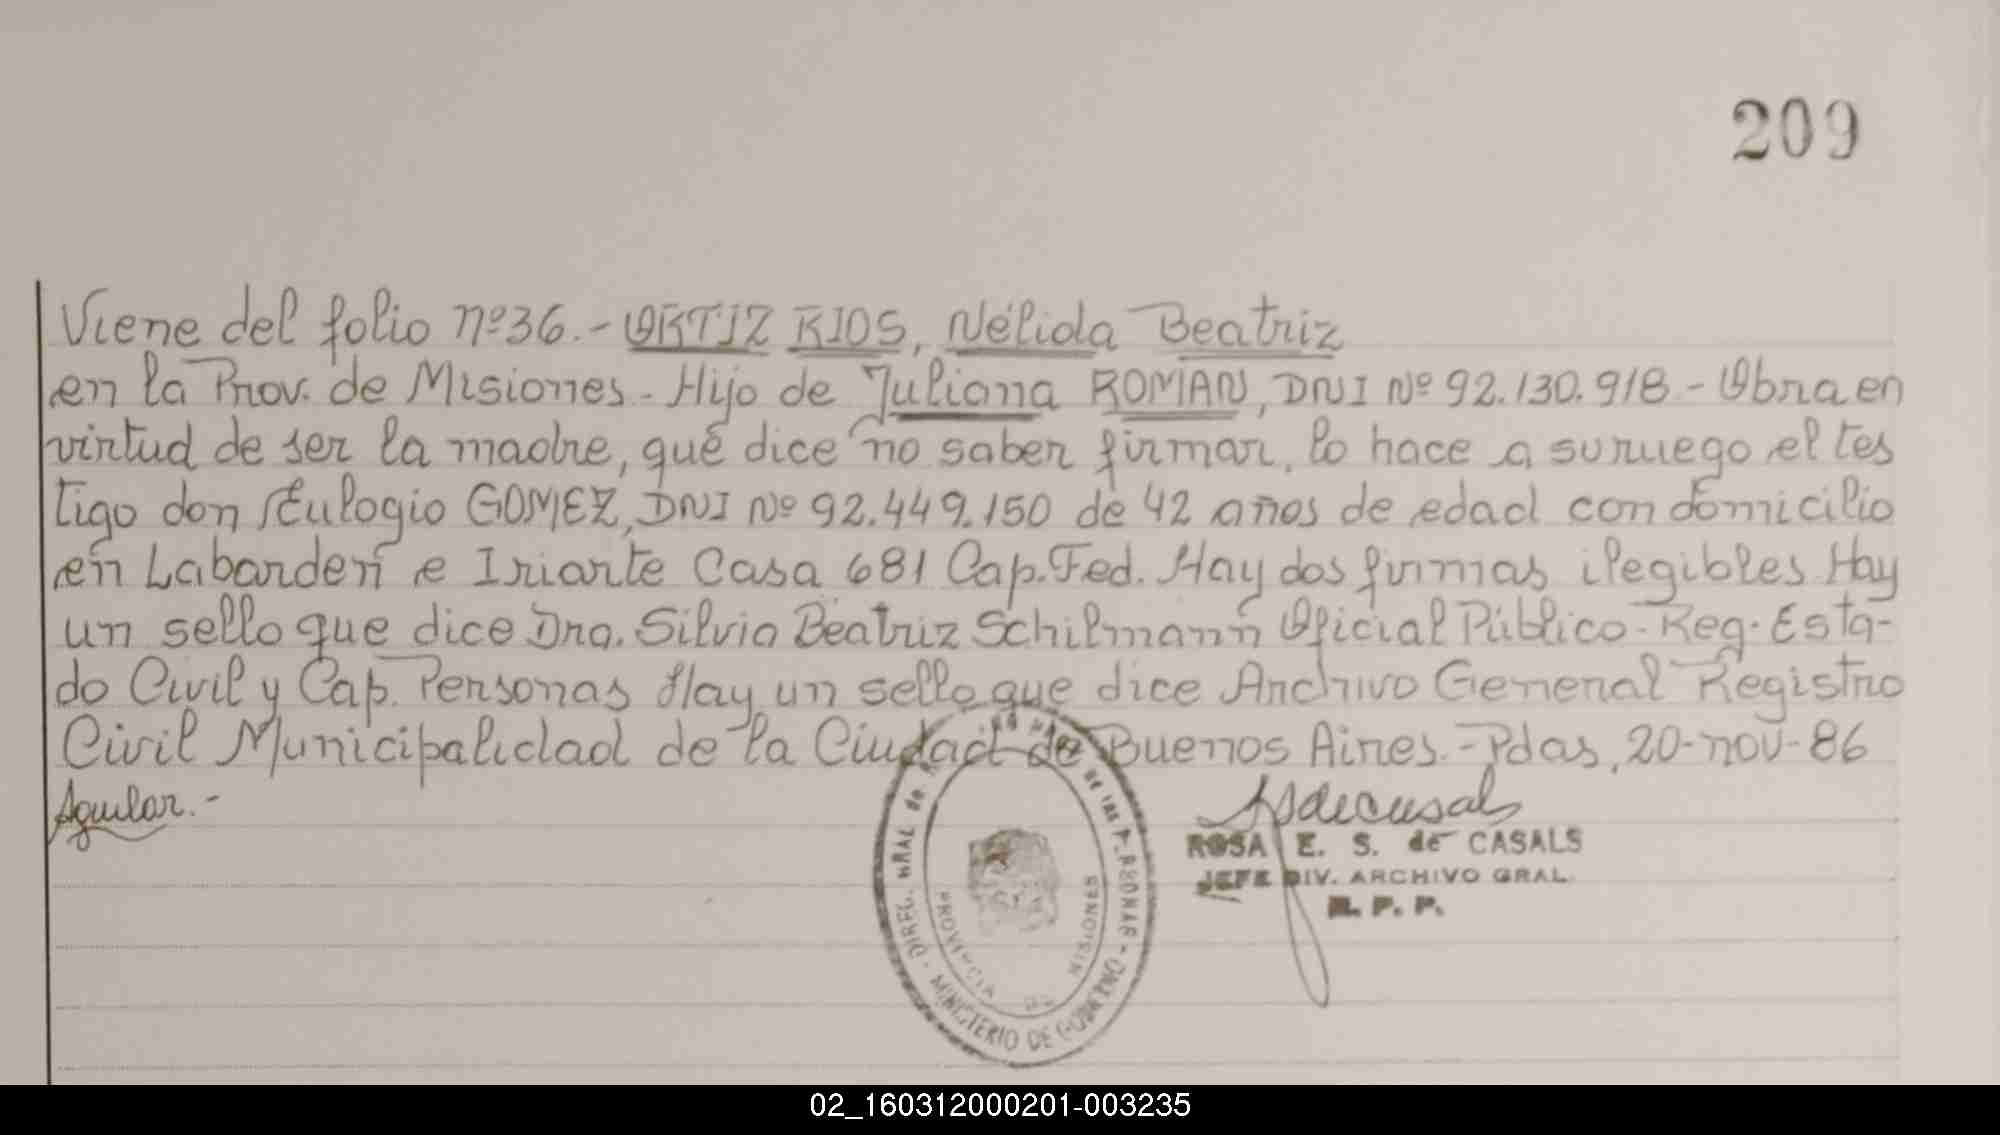 209
Viene del folio nº 36.- ORTIZ RIOS, Nélida Beatriz
en la Prov. de Misiones - Hijo de Juliana ROMAN, DNI Nº 92.130.918 - Obra en
virtud de ser la madre, que dice no saber firmar, lo hace a su ruego el tes
tigo don Eulogio GOMEZ, DNI Nº 92.449.150 de 42 años de edad con domicilio
en Labarden e Iriarte Casa 681 Cap. Fed. Hay dos firmas ilegibles Hay
un sello que dice Dra. Silvia Beatriz Schilmann Oficial Público - Reg. Esta-
do Civil y Cap. Personas Hay un sello que dice Archivo General Registro
Civil Municipalidad de la Ciudad de Buenos Aires.- Pdas, 20-nov-86
Aguilar.-
ROSA E. S. de CASALS
JEFE DIV. ARCHIVO GRAL.
R. P. P.
DIREC. GRAL de
de las PERSONAS - MINISTERIO DE GOBIERNO
PROVINCIA DE MISIONES
02_160312000201-003235